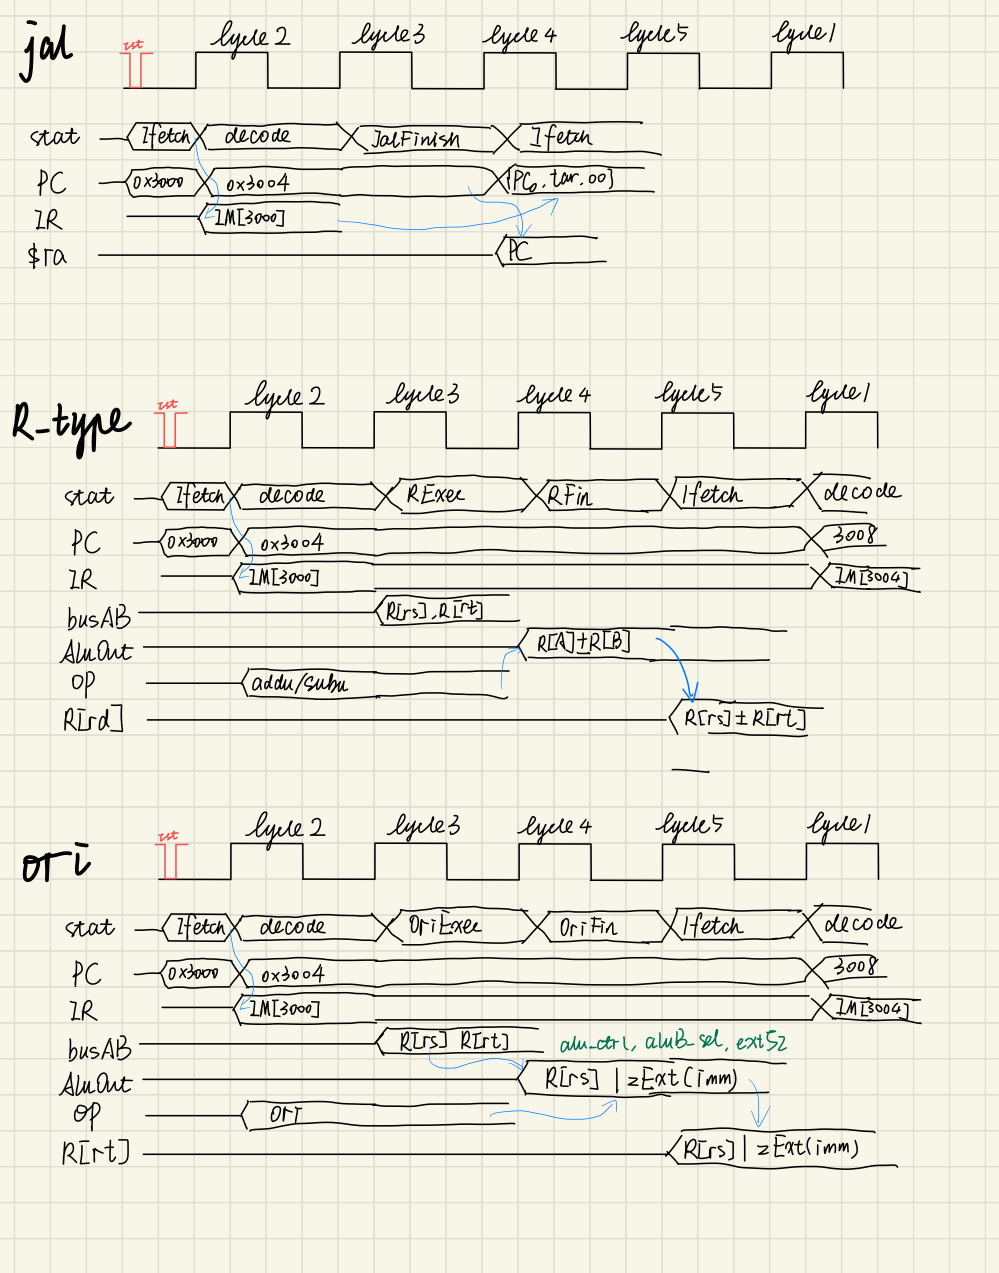 jal
rst
Cycle 2 Cycle3 Cycle 4 Cycle5 Cycle1
stat Ifetch decode JalFinish Ifetch
PC 0x3000 0x3004 {PC₀.tar.00}
IR IM[3000]
$ra PC
R_type
rst
Cycle 2 Cycle3 Cycle 4 Cycle5 Cycle1
stat Ifetch decode RExec RFin Ifetch decode
PC 0x3000 0x3004 3008
IR IM[3000] IM[3004]
busAB R[rs], R[rt]
AluOut R[A]±R[B]
OP addu/subu
R[rd] R[rs]±R[rt]
ori
rst
Cycle 2 Cycle3 Cycle 4 Cycle5 Cycle1
stat Ifetch decode OriExec OriFin Ifetch decode
PC 0x3000 0x3004 3008
IR IM[3000] IM[3004]
busAB R[rs] R[rt] alu_ctrl, aluB_sel,
AluOut R[rs] | zExt(imm)
OP ori
R[rt] R[rs] | zExt(imm)